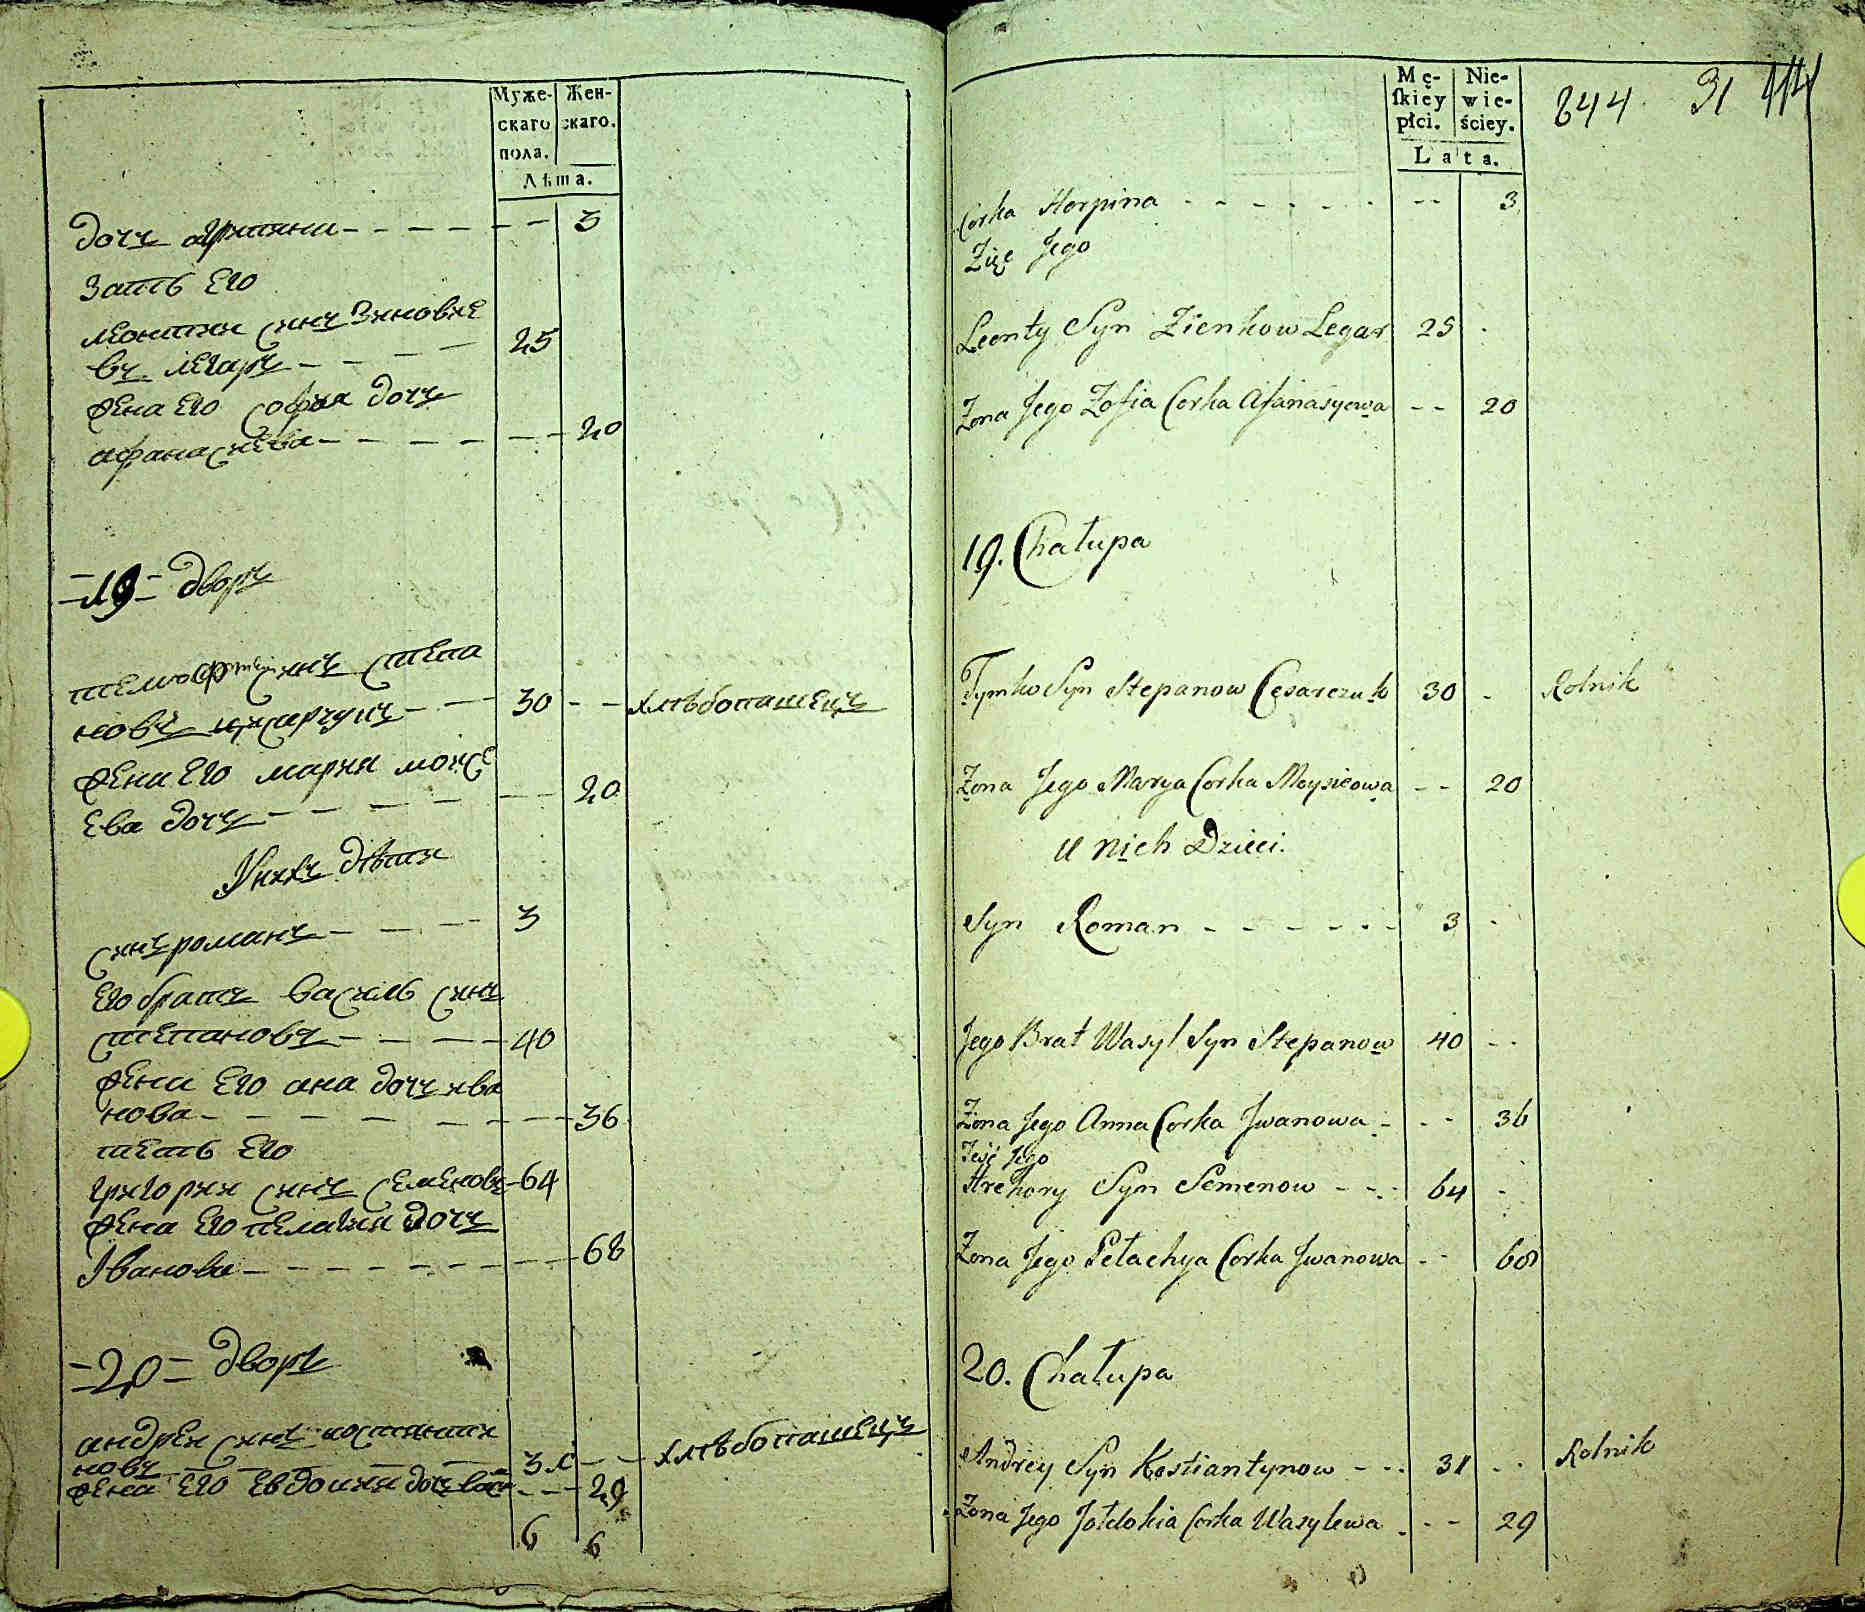 Муже-
скаго
пола.
Жен-
скаго.
Лѣта.
дочъ агрипина 3
зать его
леонтии синъ зиновие
въ легаръ 25
жена его софия дочъ
афанасиева 20
19 дворъ
синъ степа
новъ 30 хлѣбопашецъ
жена его мария моисе
ева дочъ 20
У нихъ дѣти
синъ романъ 3
его братъ василь синъ
степановъ 40
жена его ана дочъ ива
нова 36
тесть его
григории синъ семеновъ 64
жена его пелагия дочъ
Иванова 68
20 дворъ
андреи синъ костянти
новъ 31 хлѣбопашецъ
жена его евдокия дочъ вас 29
6 6
Mę-
skiey
płci.
Nie-
wie-
ściey.
Lata.
844 31 114
Corka Horpina 3
Zięc Jego
Leonty Syn Zienkow Legar 25
Zona Jego Zofia Corka Afanasyowa 20
19. Chałupa
Tymko Syn Stepanow Cesarczuk 30 Rolnik
Zona Jego Marya Corka Moysieowa 20
U nich Dzieci.
Syn Roman 3
Jego Brat Wasyl Syn Stepanow 40
Zona Jego Anna Corka Jwanowa 36
Teść Jego
Hrehory Syn Semenow 64
Zona Jego Pełachya Corka Jwanowa 68
20. Chałupa
Andrey Syn Kostiantynow 31 Rolnik
Zona Jego Jołdokia Corka Wasylewa 29